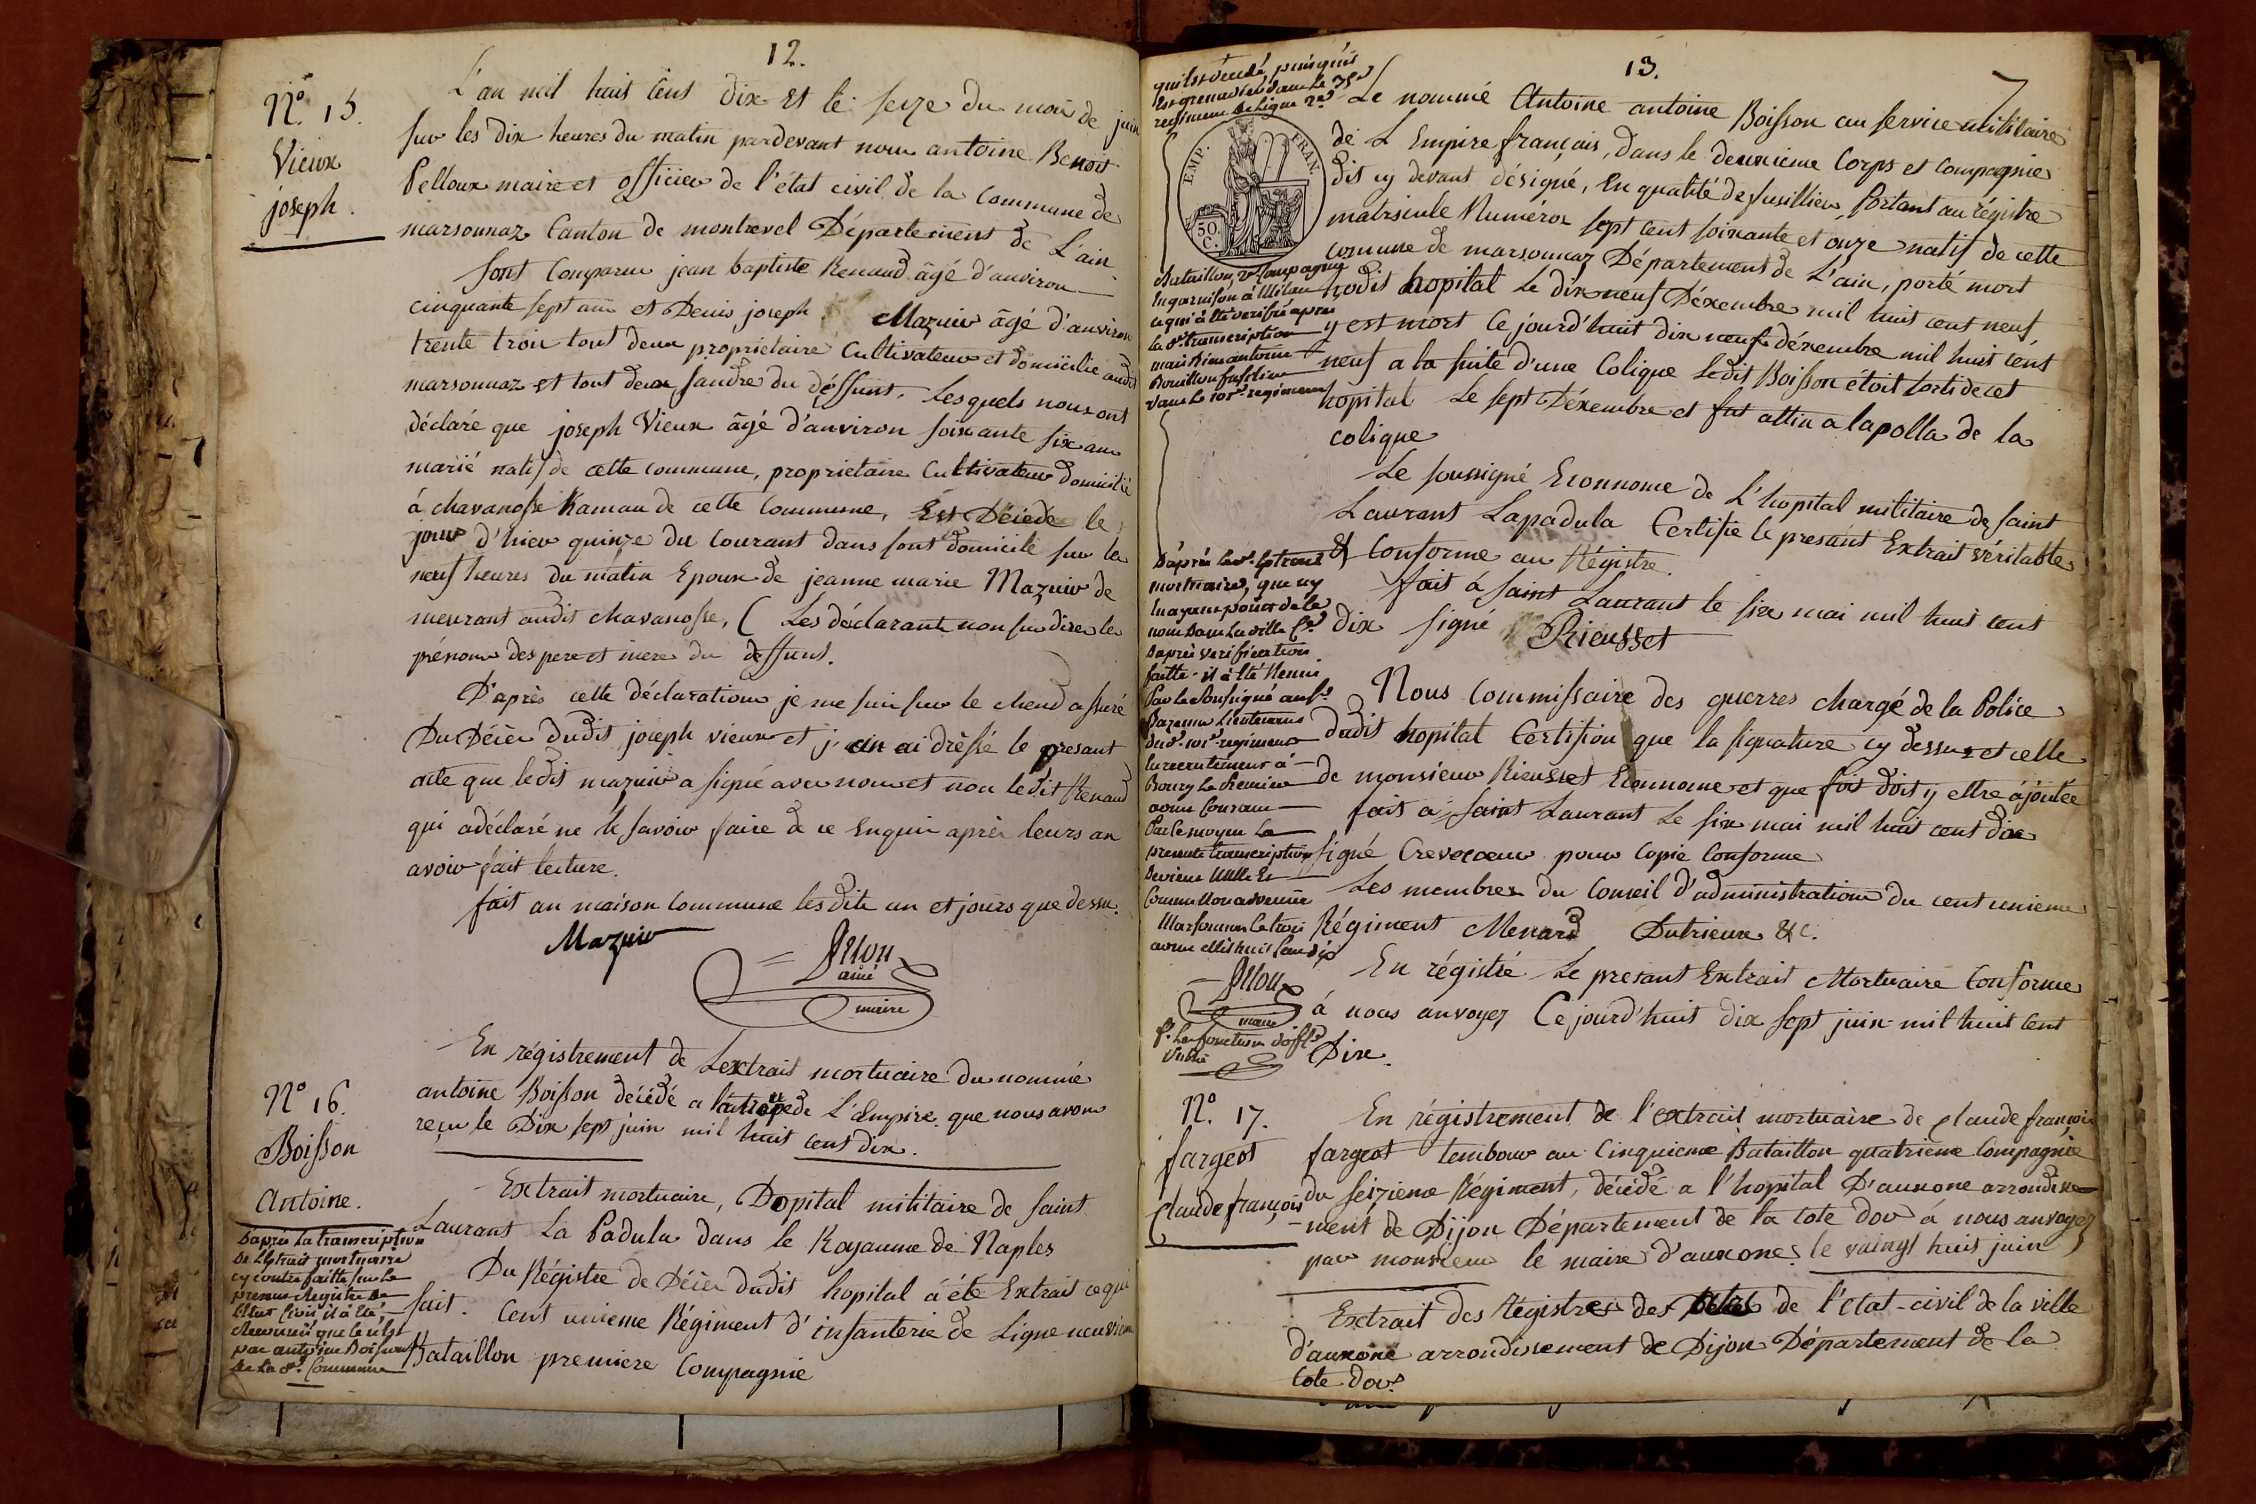 12.
N.º 15.
Vieux
joseph.
L'an mil huit cent dix et le seize du mois de juin
sur les dix heures du matin pardevant nous antoine Benoit
Pelloux maire et officier de l'état civil de la Commune de
marsonnaz Canton de montrevel Département de L'ain.
sont Comparu jean baptiste Renaud âgé d'anviron
cinquante sept ans et Denis joseph Mazuir âgé d'anviron
trente trois tout deux proprietaire Cultivateur et domicilie audit
marsonnaz et tout deux jandre du déffunt, Lesquels nous ont
déclaré que joseph Vieux âgé d'anviron soixante six ans
marié natif de cette commune, proprietaire Cultivateur domicilié
á chavanosse hamau de cette Commune, Est Décedé le
jour d'hier quinze du Courant dans sont domicile sur les
neuf heures du matin Epoux de jeanne marie Mazuir de
meurant audit chavanosse, ( Les déclarants non su dire les
prénoms des pere et mere du deffunt.
D'après cette déclaration je me suis sur le chend assuré
Du Décès dudit joseph vieux et j'en ai drèssé le presant
acte que ledit mazuir a signé avec nous et non ledit Renaud
qui a déclaré ne le savoir faire de ce Enquis après leurs an
avoir fait lecture.
fait an maison Commune lesdits an et jours que dessus.
Mazuir
Pelloux
ainé
maire
N.º 16.
Boisson
Antoine.
En régistrement de Lextrait mortuaire du nommé
antoine Boisson décédé a L'armée de L'Empire que nous avons
reçu le Dix sept juin mil huit cent dix.
Extrait mortuaire, Dopital militaire de saint
Laurant La Padula dans le Royaume de Naples
Du Régistre de Décès dudit hopital a été Extrait ce qui
suit. Cent unieme Régiment d'infanterie de Ligne neuvieme
Bataillon premiere Compagnie
D'après la transcription
De L'extrait mortuaire
cy contre faitte sur Le
present Registre De
L'état Civil il à Eté
Reconnu que ce n'est
pas antoine Boisson
De La d.e Commune
13.
qui Est décédé, puisqu'il
Est grenadier dans Le 35.e
regiment De Ligne 2.e
EMP. FRAN.
50.
C.
Bataillon, 2.e Compagnie
En garnison à Milan
ce qui à été verifié après
La d.e transcription
mais Bien antoine
Bouillon fusilier
dans Le 101.e regiment
Le nommé Antoine antoine Boisson au service militaire
de L'Empire français, dans le deuxieme Corps et Compagnie
dit cy devant désigné, En qualité de fusillier Portant au régistre
matricule Numéros sept cent soixante et onze natif de cette
comune de marsonnaz Département de L'ain, porté mort
audit hopital le dix neuf Déxembre mil huit cent neuf
y est mort Ce jourd'huit dix neuf déxembre mil huit cent
neuf a la suite d'une Colique Ledit Boisson étoit sorti de cet
hopital Le sept Déxembre et fut attin a lapolla de la
colique
Le soussigné Econnome de L'hopital militaire de saint
Laurant Lapadula Certifie le presant Extrait véritable
& Conforme au Régistre.
fait á saint Laurant le six mai mil huit cent
dix signé Rieusset
D'après Led.t Extrait
mortuaire, que n'y
En ayant point de ce
nom Dans La ville &.a
D'après verification
faitte - il à Eté Remis
Par Le Soussigné
Lieutenant
Du d.t 101.e regiment
En recrutement à
Bourg Le Premier
aoust Courant
Par Ce moyen La
presente transcription
Devient Nulle Et
Comme Non advenue
Marsonnas Ce trois
aoust Mil huit Cent dix
Pelloux
maire
P.r Les fonctions d'off.r
Public
Nous Commissaire des guerres chargé de la Police
dudit hopital Certifion que la signature cy dessus et celle
de monsieur Rieusset Econnome et que foit doit y ettre ajoutée
fait a saint Laurant Le six mai mil huit cent dix
signé Crevecoeur pour Copie Conforme
Les membres du Conseil d'administration du cent unieme
Régiment Menard Dutrieux &c.
En régistré Le presant Extrait Mortuaire Conforme
á nous anvoyez Ce jourd'huit dix sept juin mil huit Cent
Dix.
N.º 17.
fargeot
Claude françois
En régistrement de l'extrait mortuaire de claude françois
fargeot tembour au Cinquieme Bataillon quatrieme Compagnie
du seizieme Régiment, décédé a l'hopital D'auxone arrondisse
ment de Dijon Département de la Cote dor á nous anvoyez
par monsieur le maire d'auxone, le vaingt huit juin
Extrait des Régistres des actes de l'Etat-civil de la ville
d'auxone arrondissement de Dijon Département de la
Cote dor.